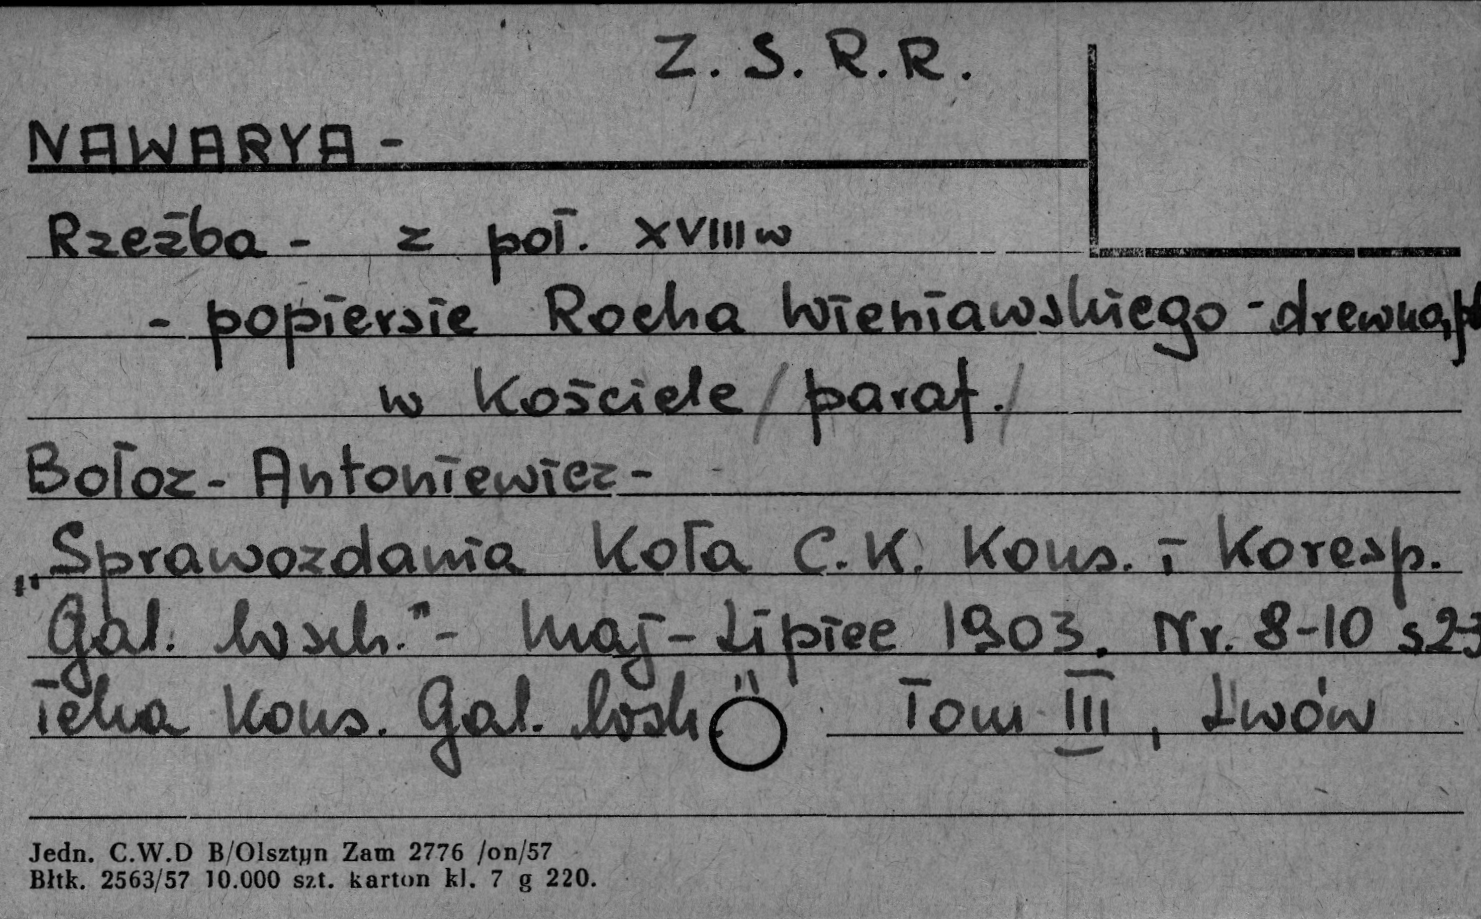 Z. S. R. R.
NAWARYA -
Rzeźba - z poł. XVIII w
- popiersie Rocha Wieniawskiego - drewna,
w Kościele / paraf. /
Bołoz - Antoniewicz -
„Sprawozdania Koła C. K. Kons. i Koresp.
Gal. Wsch." - Maj - Lipiec 1903. Nr. 8-10 s 23
Teka Kons. Gal. Wsch." Tom III, Lwów
Jedn. C.W.D B/Olsztyn Zam 2776 /on/57
Błtk. 2563/57 10.000 szt. karton kl. 7 g 220.